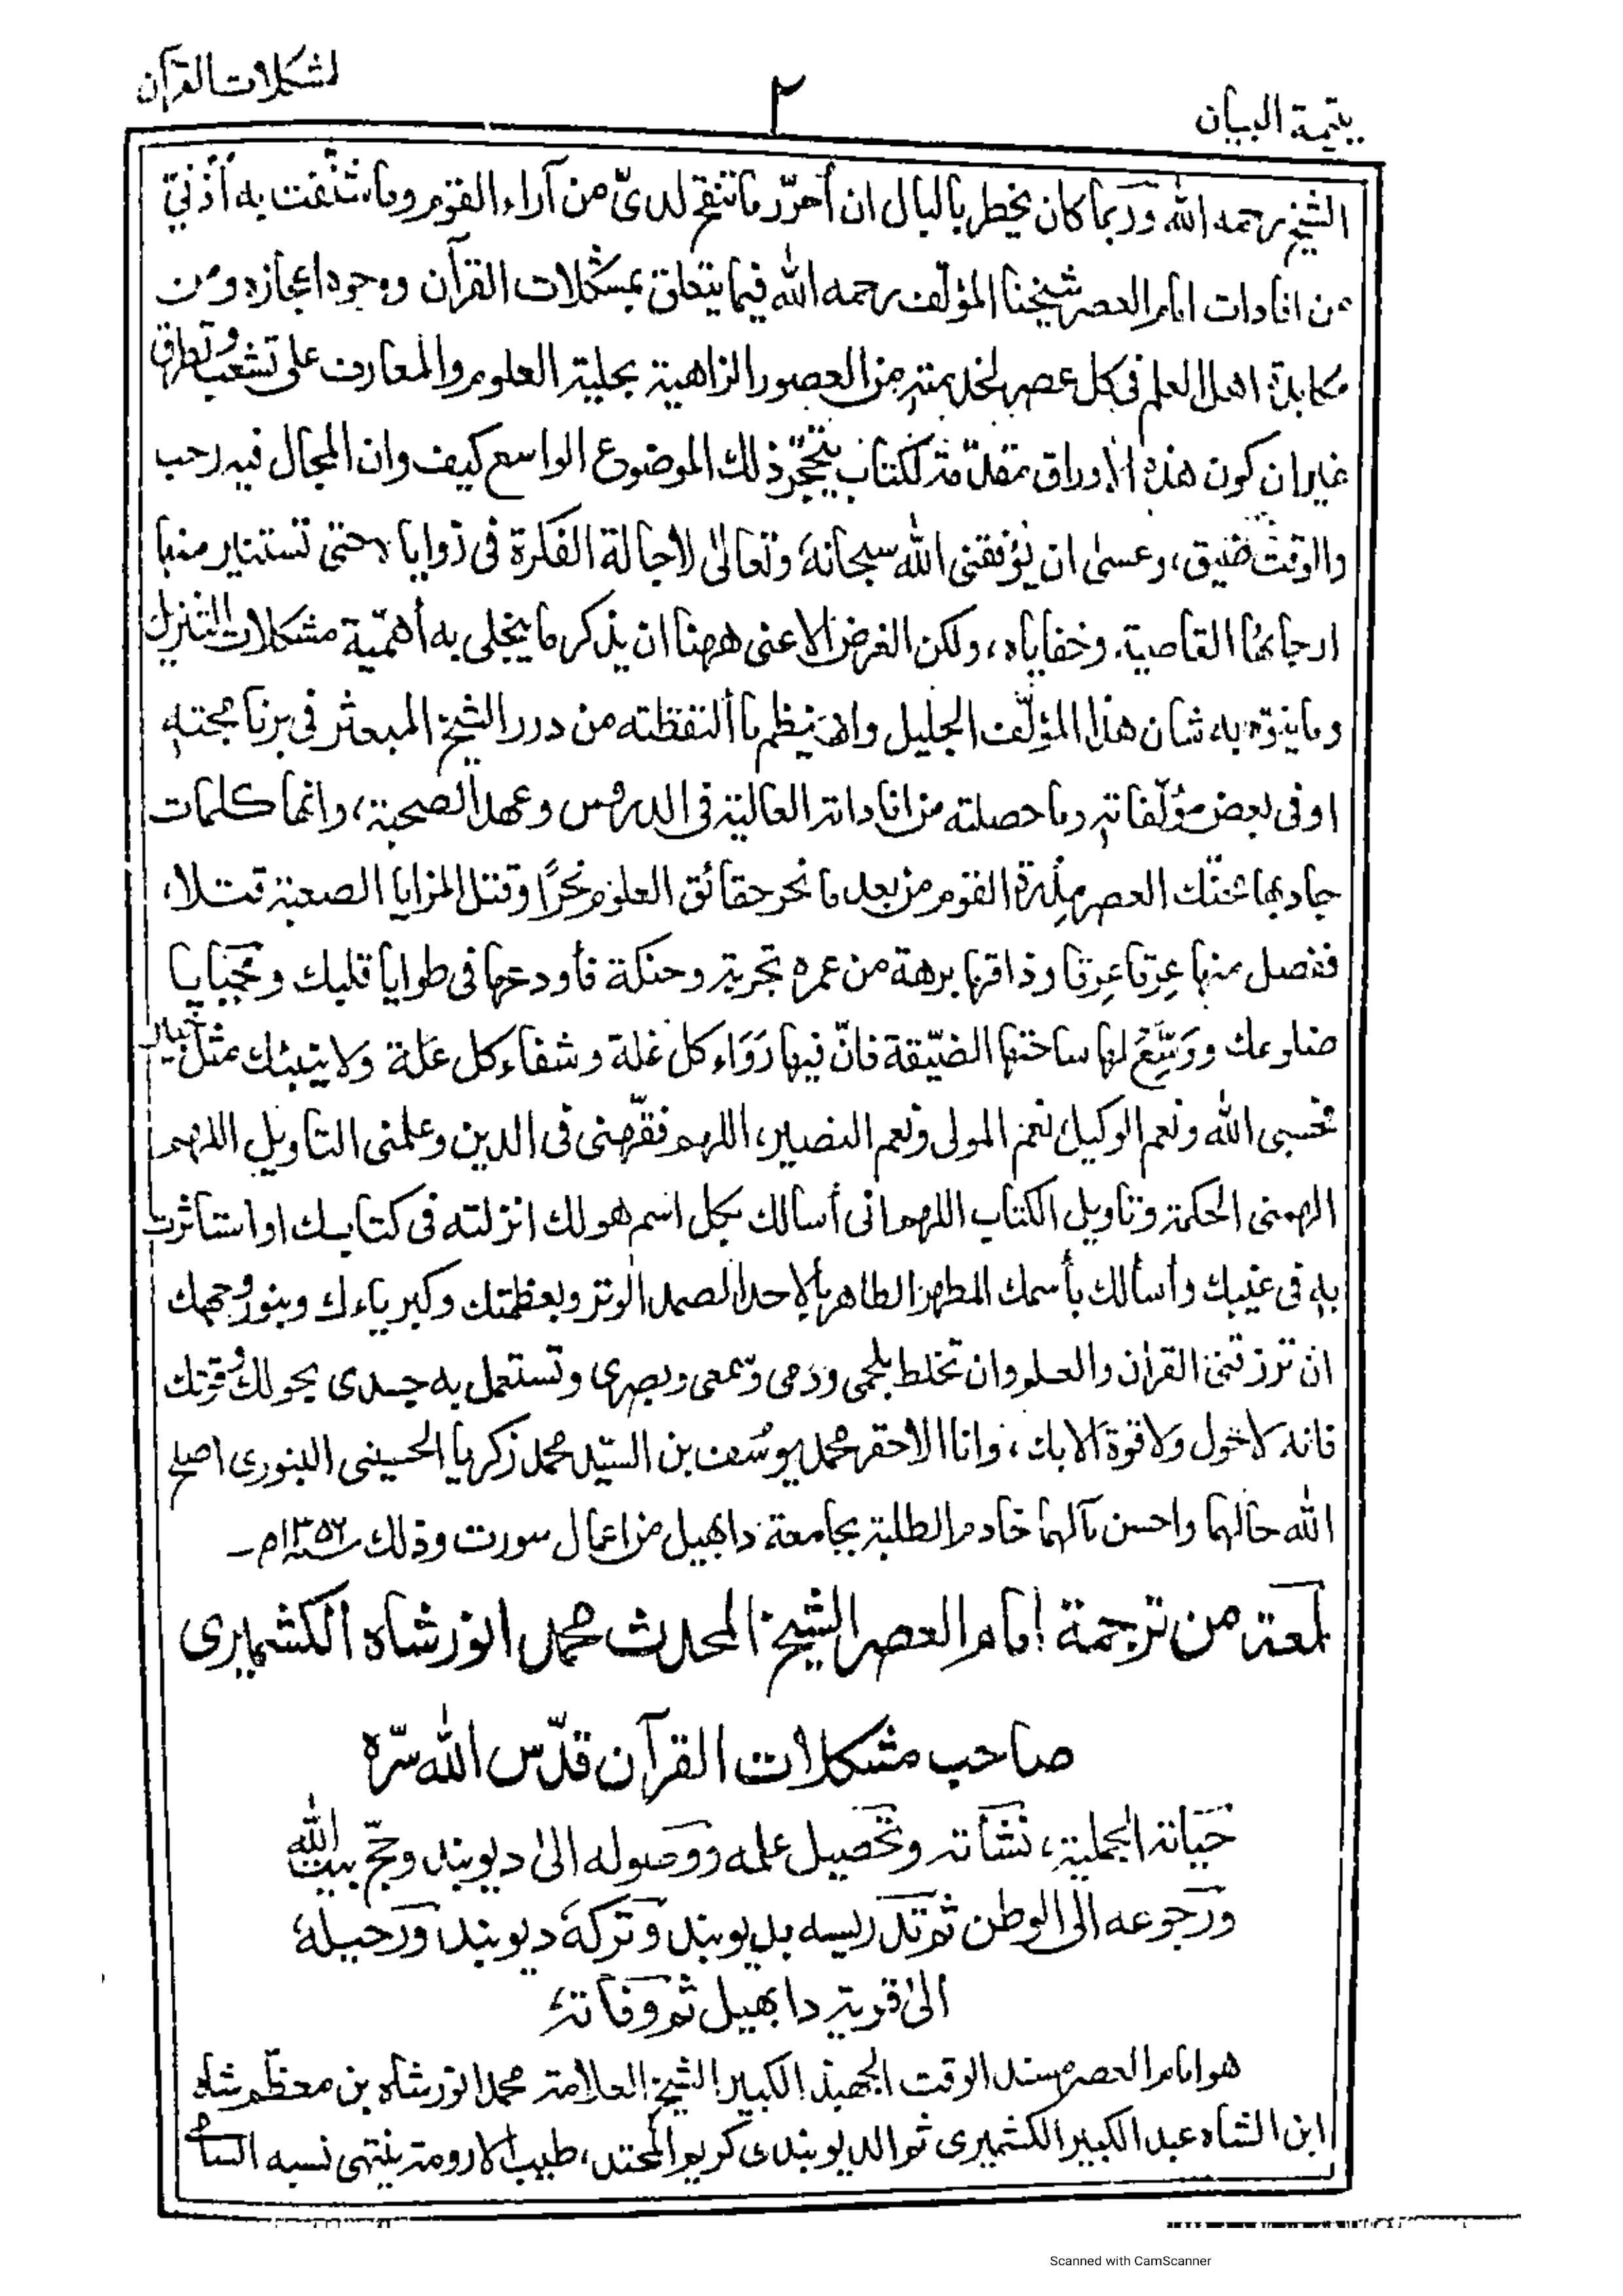 يتيمة البيان
٢
لمشكلات القرآن
الشيخ رحمه الله وربما كان يخطر بالبال ان أحرّر ما تنقح لدىّ من آراء القوم وما شنّفت به أذنيّ
من افادات امام العصر شيخنا المؤلّف رحمه الله فيما يتعلق بمشكلات القرآن ووجوه اعجازه ومن
مكابدة اهل العلم فى كل عصر لخدمته من العصور الزاهية بحلية العلوم والمعارف على تشعب وتطرق
غيران كون هذه الاوراق مقدّمة لكتاب يتحجّر ذلك الموضوع الواسع كيف وان المجال فيه رحب
والوقت ضيق، وعسىٰ ان يُوفقنى الله سبحانهٗ وتعالىٰ لاجالة الفكرة فى زواياه حتى تستنير منها
ارجائها القاصية وخفاياه، ولكن الغرض الاعنى ههنا ان يذكر ما ينجلى به أهمّية مشكلات التنزيل
وما ينوّه به شان هذا المؤلّف الجليل وان ينظم ما التقطته من درر الشيخ المبعثر فى برنامجته
او فى بعض مؤلّفاته وما حصلته من افاداته العالية فى الدروس وعهد الصحبة، وانما كلمات
جاد بها محنّك العصر مِدرة القوم من بعد ما نحر حقائق العلوم نحرًا وقتل المزايا الصعبة قتلا،
ففصل منها عِرقا عِرقا وذاقها برهة من عمره تجربة وحنكة فأودعها فى طوايا قلبك وخبايا
ضلوعك ووَسِّعْ لها ساحتها الضيّقة فانّ فيها رَوَاء كل غلة وشفاء كل علة ولا ينبئك مثل خبير
فحسبى الله ونعم الوكيل نعم المولى ونعم النصير، اللهم فقّهنى فى الدين وعلمنى التاويل اللهم
الهمنى الحكمة وتاويل الكتاب اللهم انى أسالك بكل اسم هو لك انزلته فى كتابك او استاثرت
به فى غيبك وأسألك بأسمك المطهر الطاهر بالاحد الصمد الوتر وبعظمتك وكبرياءك وبنور وجهك
ان ترزقنى القران والعلم وان تخلط بلحمى ودمى وسمعى وبصرى وتستعمل به جسدى بحولك وقوتك
فانه لا حول ولا قوة الا بك، وانا الاحقر محمد يوسُف بن السيّد محمد زكريا الحسينى البنورى اصلح
الله حالهما واحسن مآلهما خادم الطلبة بجامعة دابهيل من اعمال سورت وذلك
لمعة من ترجمة امام العصر الشيخ المحدث محمد انور شاه الكشميرى
صاحب مشكلات القرآن قدّس الله سرّه
حَيَاته الجملية، نَشأته وتَحصيل علمه وَوَصوله الىٰ ديوبند وحجّ بيت الله
وَرَجوعه الى الوطن ثم تدريسه بديوبند وَتركهٗ ديوبند وَرَحيلهٗ
الىٰ قرية دابهيل ثم وَفاتهٗ
هو امام العصر مسند الوقت الجهبذ الكبير الشيخ العلامة محمد انور شاه بن معظّم شاه
ابن الشاه عبد الكبير الكشميرى ثم الديوبندى كريم المحتد، طيب الارومة ينتهى نسبه السامى
Scanned with CamScanner